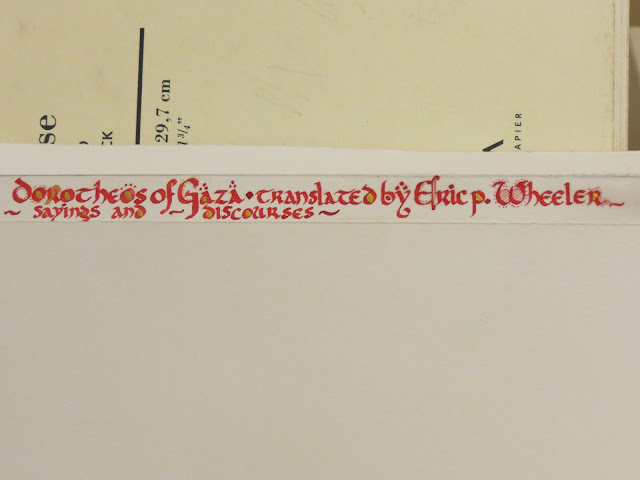 se
CK
29,7 cm
1 3/4"
A
PAPIER
Dorotheös of Gäzä · translated by Eric p. Wheeler ~
~ sayings and ~ discourses ~